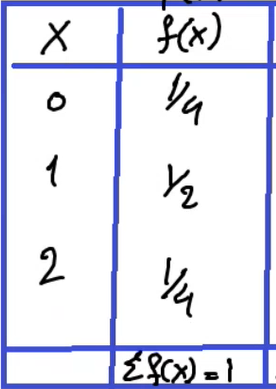 X f(x)
0 1/4
1 1/2
2 1/4
Σf(x) = 1